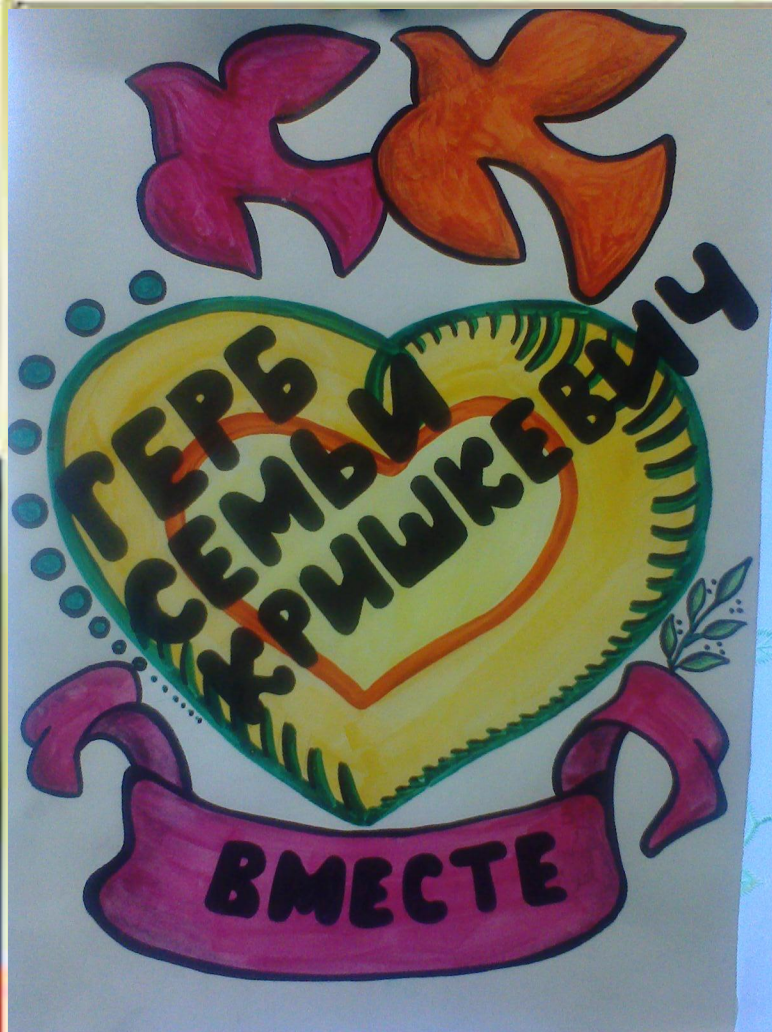 ГЕРБ
СЕМЬИ
КРИШКЕВИЧ
ВМЕСТЕ